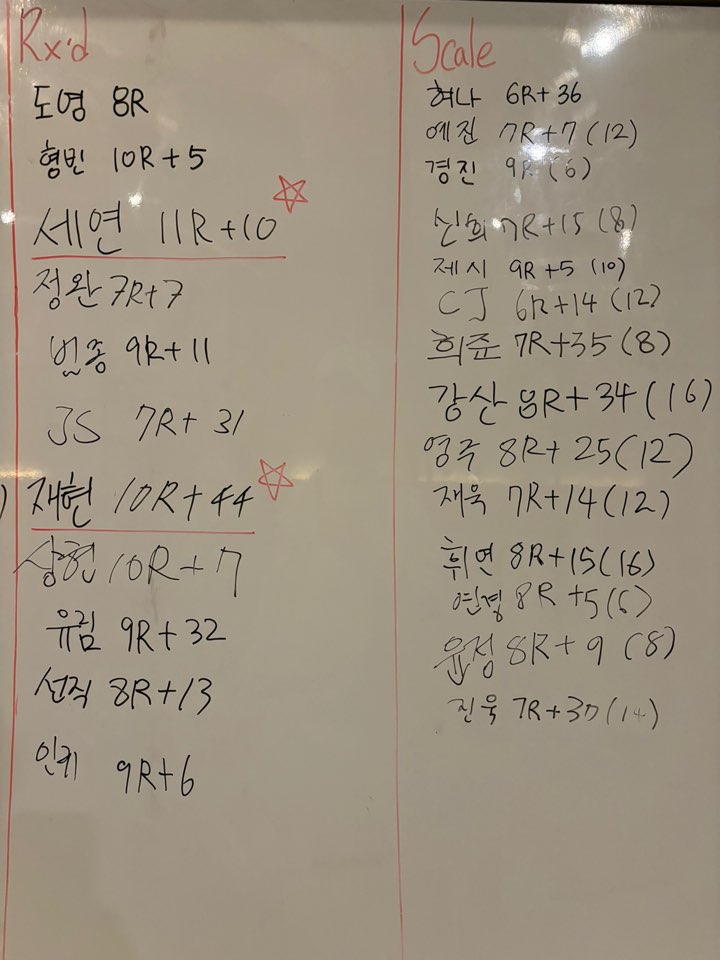 Rx'd
도영 8R
형빈 10R+5
세연 11R+10
정완 7R+7
번종 9R+11
JS 7R+31
재현 10R+44
상현 10R+7
유림 9R+32
선직 8R+13
인키 9R+6
Scale
혀나 6R+36
예진 7R+7(12)
경진 9R(6)
신희 7R+15(8)
제시 9R+5(10)
CJ 6R+14(12)
희쥰 7R+35(8)
강산 8R+34(16)
영주 8R+25(12)
재욱 7R+14(12)
휘연 8R+15(16)
연경 8R+5(6)
윤정 8R+9(8)
진욱 (14)